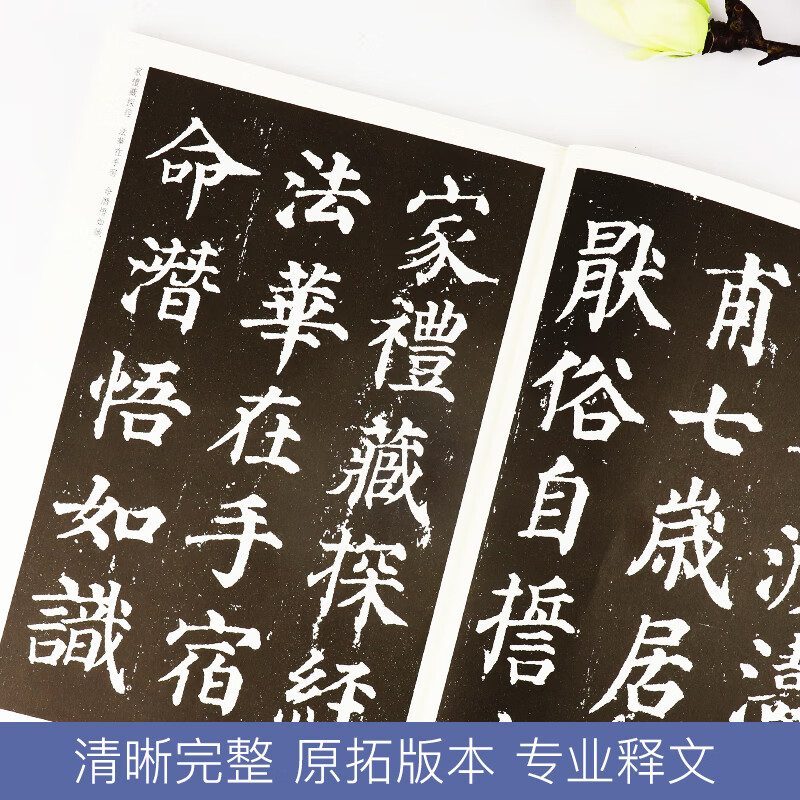 甫七歲居
猒俗自誓
家禮藏探經
法華在手宿
命潛悟如識
家禮藏探經 法華在手宿 命潛悟如識
清晰完整 原拓版本 专业释文